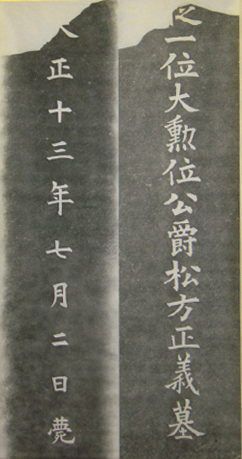 一位大勲位公爵松方正義墓
正十三年七月二日薨